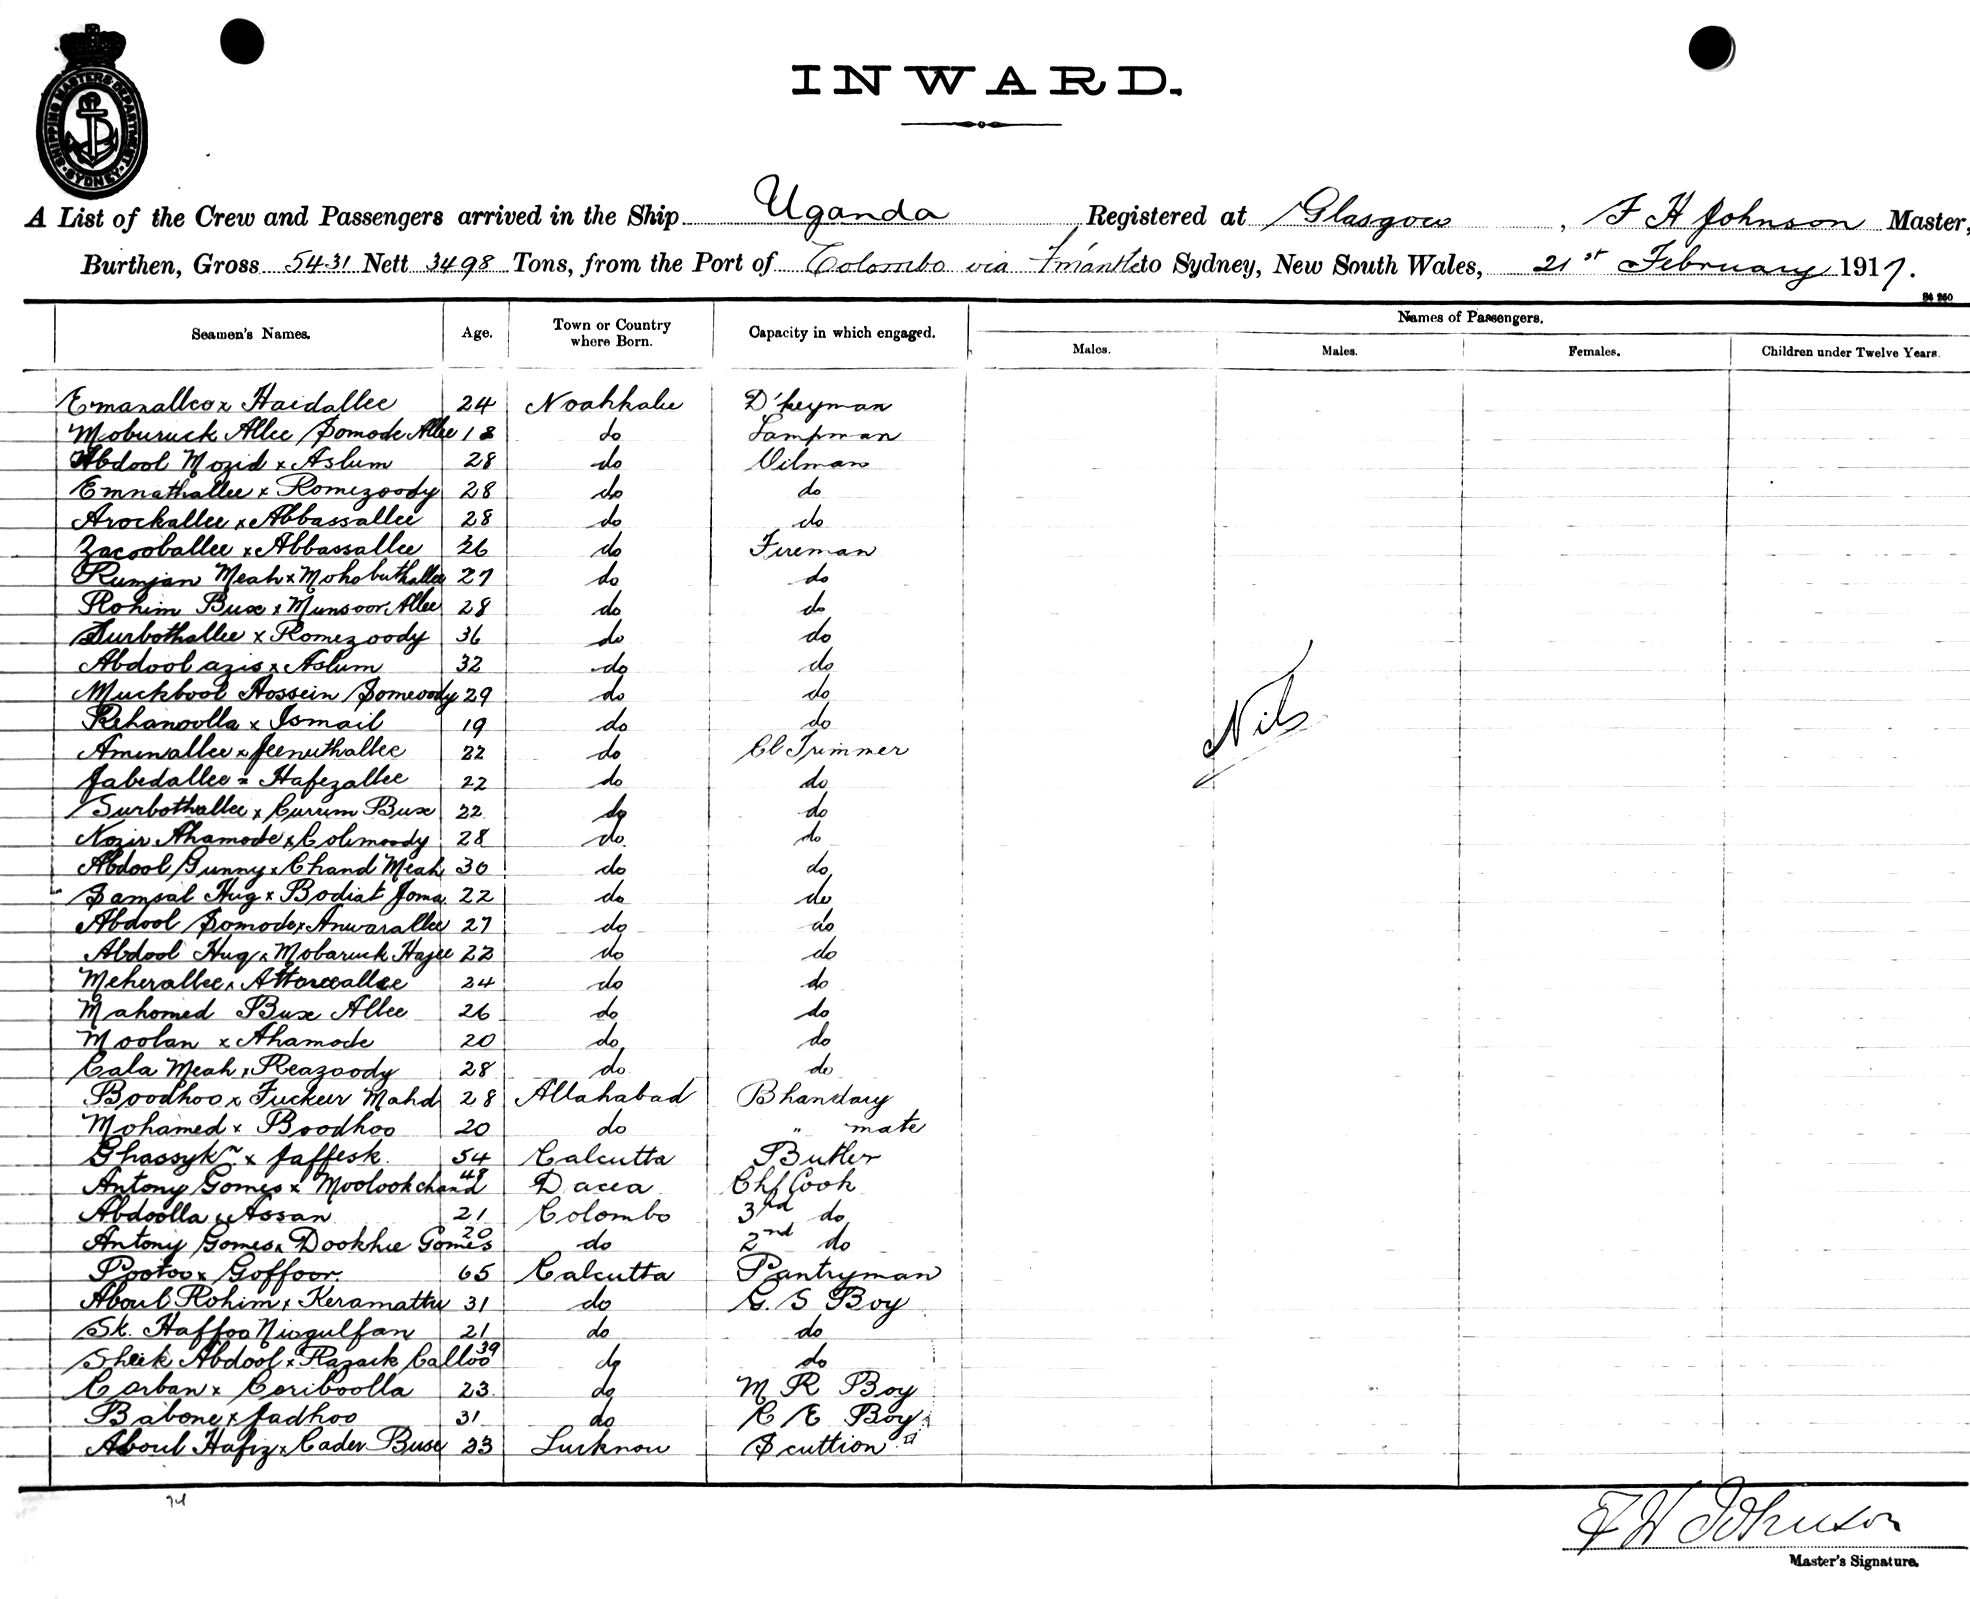 SHIPPING MASTERS DEPARTMENT
SYDNEY
INWARD.
A List of the Crew and Passengers arrived in the Ship Uganda Registered at Glasgow, F H Johnson Master,
Burthen, Gross 5431 Nett 3498 Tons, from the Port of Colombo via F'mantle to Sydney, New South Wales, 21st February 1917.
Seamen's Names. Age. Town or Country where Born. Capacity in which engaged. Names of Passengers.
Males. Males. Females. Children under Twelve Years.
Emanalleo x Haidallee 24 Noahkalie D'keyman
Moburuck Allee Somode Allee 18 do Lampman
Abdool Mozid x Aslum 28 do Oilman
Emnathallee x Romezoody 28 do do
Arockallee x Abbassallee 28 do do
Zacooballee x Abbassallee 26 do Fireman
Rumjan Meah x Mohobuthallee 27 do do
Rohim Bux x Munsoor Allee 28 do do
Surbothallee x Romezoody 36 do do
Abdool azis x Aslum 32 do do
Muckbool Hossein Someoody 29 do do
Rehanoolla x Ismail 19 do do
Nil
Amenallee x Jeenuthallee 22 do Cl Trimmer
Jabedallee = Hafezallee 22 do do
Surbothallee x Currum Bux 22 do do
Nozir Ahamode x Colimoody 28 do do
Abdool Gunny x Chand Meah 30 do do
Samsal Hug x Bodiat Joma 22 do do
Abdool Somode x Anwarallee 27 do do
Abdool Huq x Mobaruck Hajee 22 do do
Meherallee x Attareeallee 24 do do
Mahomed Bux Allee 26 do do
Moolan x Ahamode 20 do do
Cala Meah x Reazoody 28 do do
Boodhoo x Fuckeer Mahd 28 Allahabad Bhandary
Mohamed x Boodhoo 20 do " mate
Ghassyk x Jaffesk. 54 Calcutta Butler
Antony Gomes x Moolookchand 48 Dacca Chf Cook
Abdoolla x Assan 21 Colombo 3rd do
Antony Gomes x Dookhie Gomes 20 do 2nd do
Pootoo x Goffoor. 65 Calcutta Pantryman
Aboul Rohim x Keramattu 31 do G. S Boy
Sk. Haffoo Nisgulfan 21 do do
Sheik Abdool x Razack Calloo 39 do do
Corban x Coriboolla 23 do M R Boy
Babone x Jadhoo 31 do C E Boy
Aboul Hafiz x Cader Buse 23 Lucknow Scuttion
74
F H Johnson
Master's Signature.